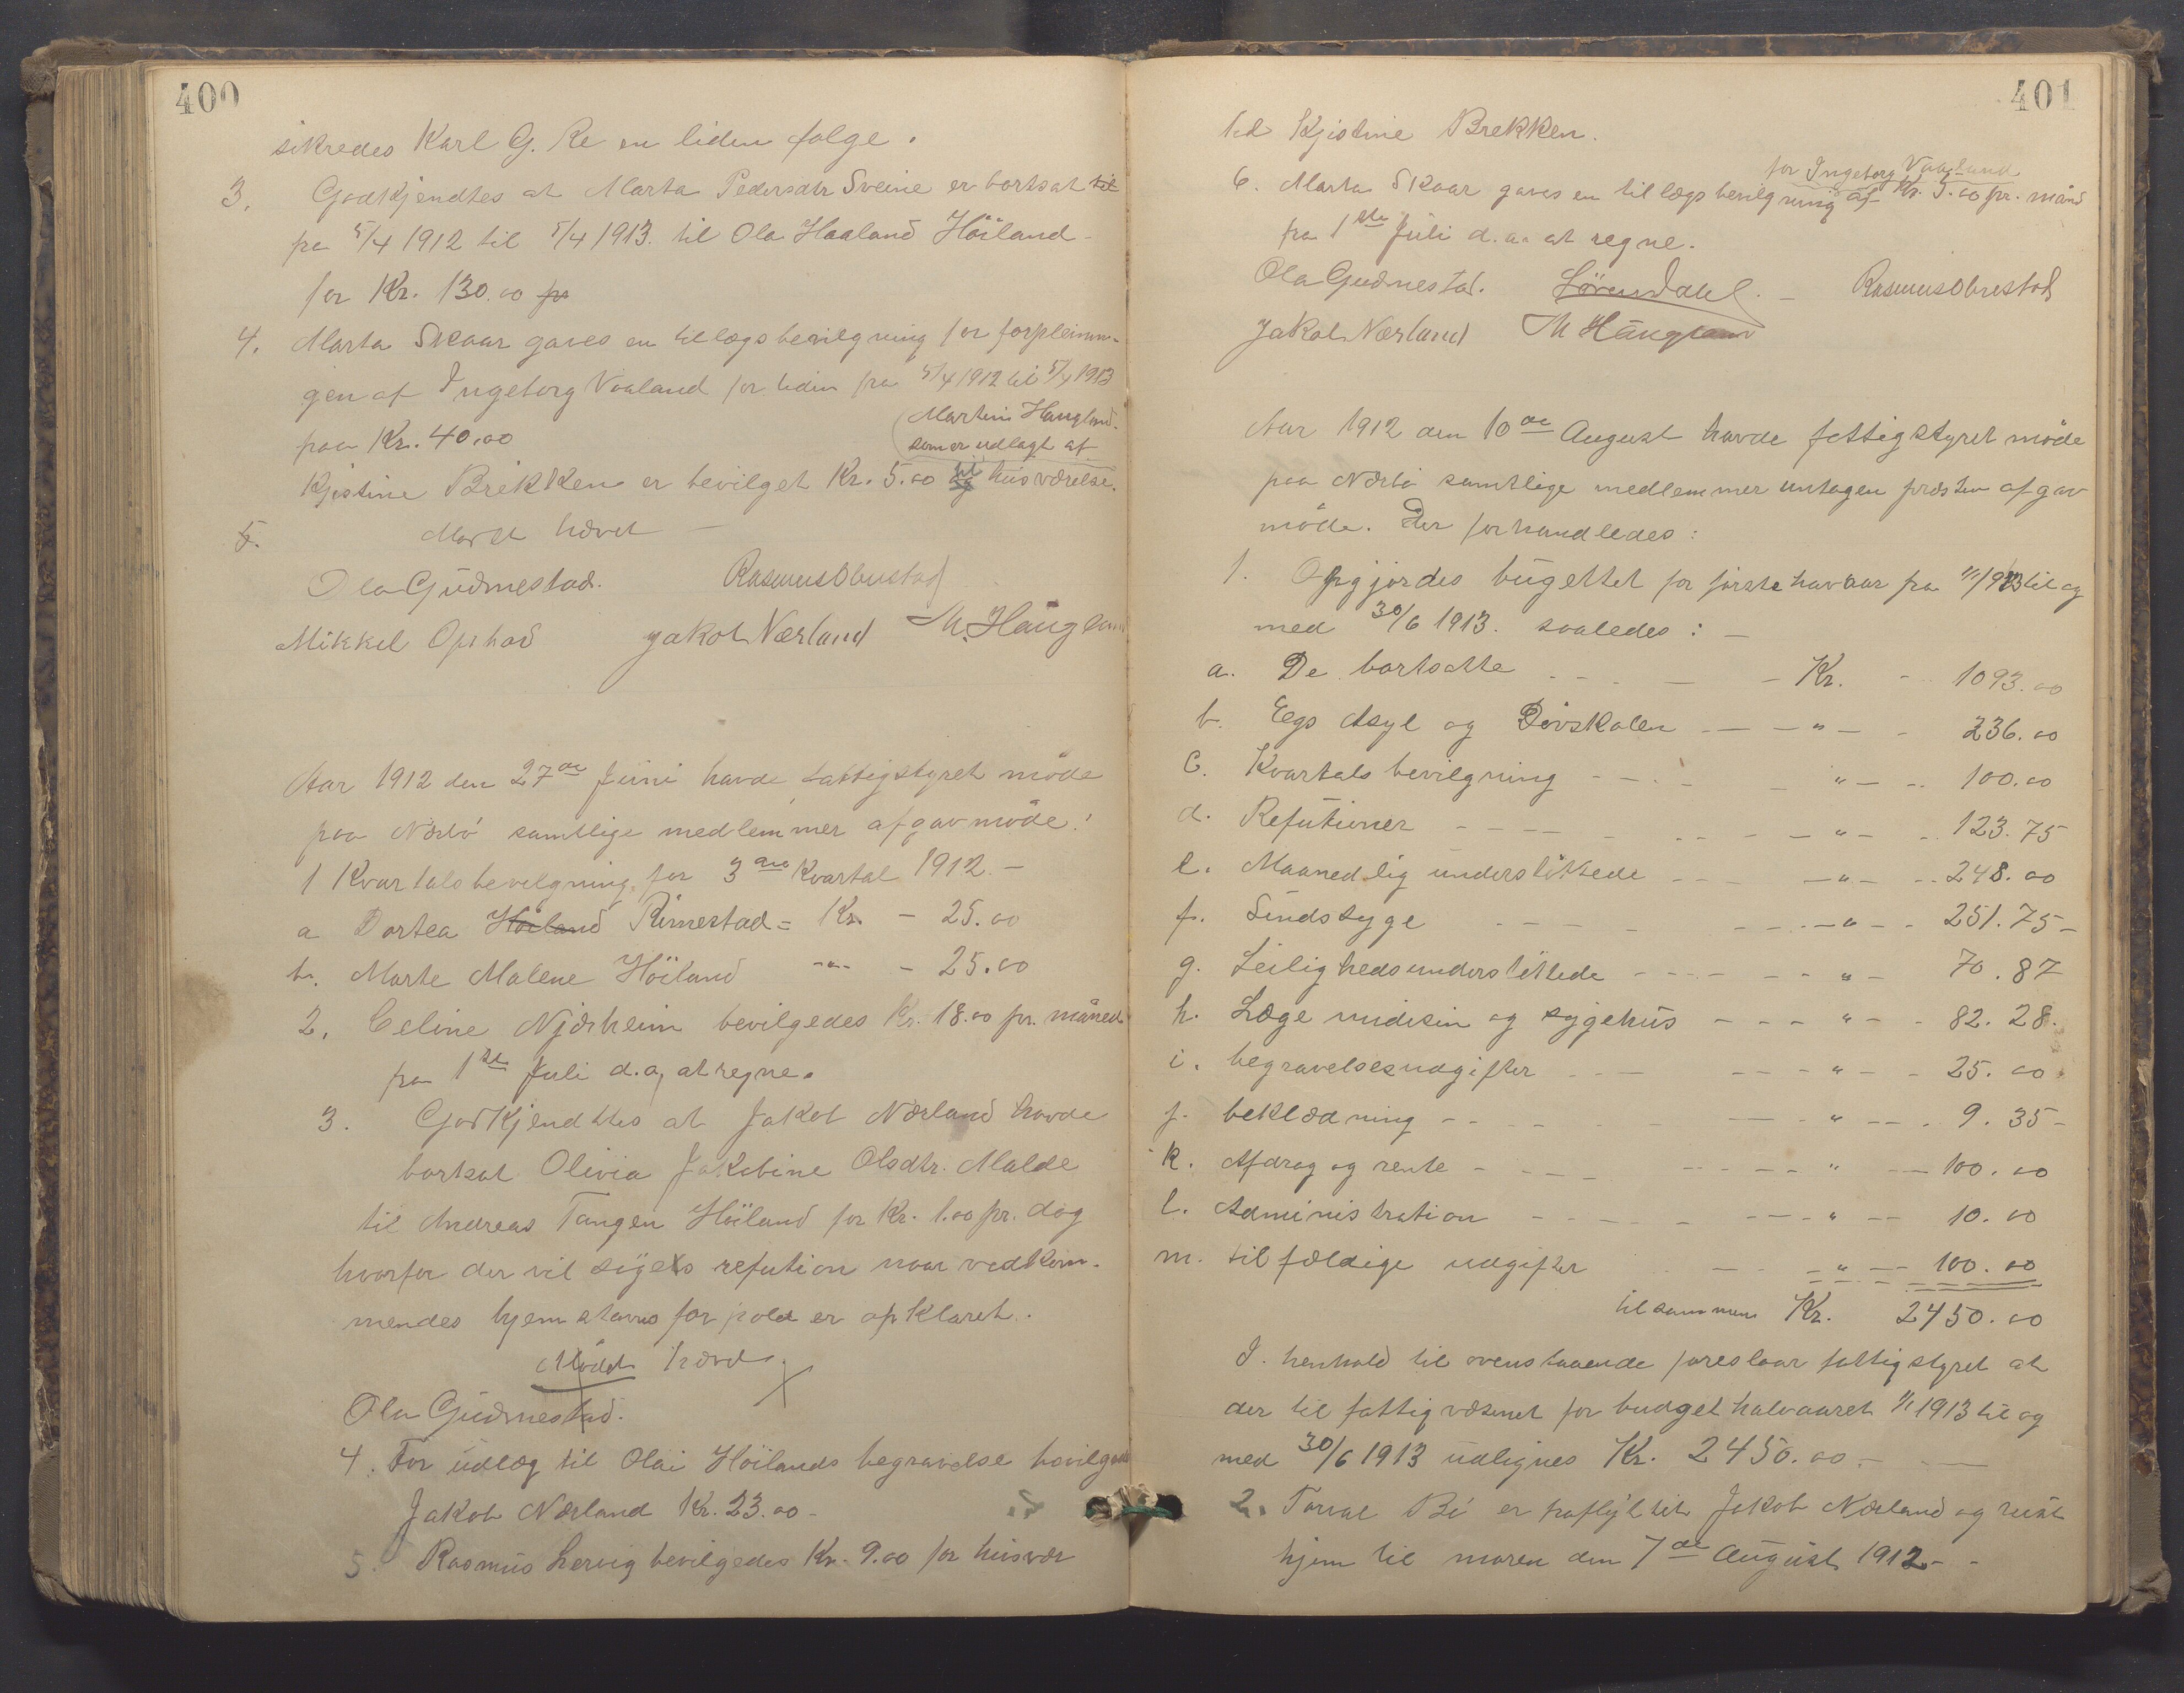 400
sikredes Karl G. Re en liden følge.
3. Godkjendtes at Marta Pedersdtr Sveine er bortsat til
fra 5/4 1912 til 5/4 1913. til Ola Haaland Höiland
for Kr. 130.00 for
4. Marta Skaar gaves en tillægsbevilgning for forpleinin-
gen af Ingeborg Vaaland for tiden fra 5/4 1912 til 5/4 1913
paa Kr. 40.00
Martin Haugland.
som er udlagt af
Kjistine Brekken er bevilget Kr. 5.00 til husværelse.
5. Mödet hævet
Ola Gudmestad. Rasmus Obrestad
Mikkel Opstad Jakob Nærland M. Haugland
Aar 1912 den 27de Juni havde fattigstyret möde
paa Nærbö samtlige medlemmer afgav möde!
1 Kvartalsbevilgning for 3die Kvartal 1912. -
a Dortea Höiland Rimestad = Kr. - 25.00
b. Marte Malene Höiland -"- - 25.00
2. Celine Njærheim bevilgedes Kr. 18.00 pr. måned
fra 1ste Juli d.a. at regne.
3. Godkjendttes at Jakob Nærland havde
bortsat Olivia Jakobine Olsdtr. Malde
til Andreas Tangen Höiland for Kr. 1.00 pr. dag
hvorfor der vil söges refution naar vedkom-
mendes hjemstavns forhold er opklaret.
Mödet hævet.
Ola Gudmestad.
4. For udlæg til Olai Höilands begravelse bevilgedes
Jakob Nærland Kr. 23.00 -
5. Rasmus Lervig bevilgedes Kr. 9.00 for husvær
401
ved Kjistine Brekken.
for Ingeborg Vaaland
6. Marta Skaar gaves en tillægsbevilgning af Kr. 5.00 pr. månd
fra 1ste Juli d.a. at regne.
Ola Gudmestad. Lövendahl. - Rasmus Obrestad
Jakob Nærland M Haugland
Aar 1912 den 10de August havde fattigstyret möde
paa Nærbö samtlige medlemmer untagen præsten afgav
möde. Der forhandledes:
1. Opgjordes bugettet for förste havaar fra 1/1 1913 til og
med 30/6 1913. saaledes: -
a. De bortsatte - Kr. - 1093.00
b. Eegs Asyl og Dövskolen - " - 236.00
C. Kvartals bevilgning - " - 100.00
d. Refutioner - " - 123.75
e. Maanedlig understöttede - " - 248.00
f. Sindssyge - " - 251.75 -
g. Leilighedsunderstöttede - " - 70.87
h. Læge medisin og sygehus - " - 82.28.
i. begravelsesudgifter - " - 25.00
j. beklædning - " - 9.35 -
k. Afdrag og rente - " - 100.00
l. Administration - " - 10.00
m. tilfældige udgifter - " - 100.00
tilsammen Kr. 2450.00
I henhold til ovenstaaende foreslaar fattigstyret at
der til fattigvæsenet for budget halvaaret 1/1 1913 til og
med 30/6 1913 udlignes Kr. 2450.00. -
2. Torval Bö er fraflyttet Jakob Nærland og reist
hjem til moren den 7de August 1912. -